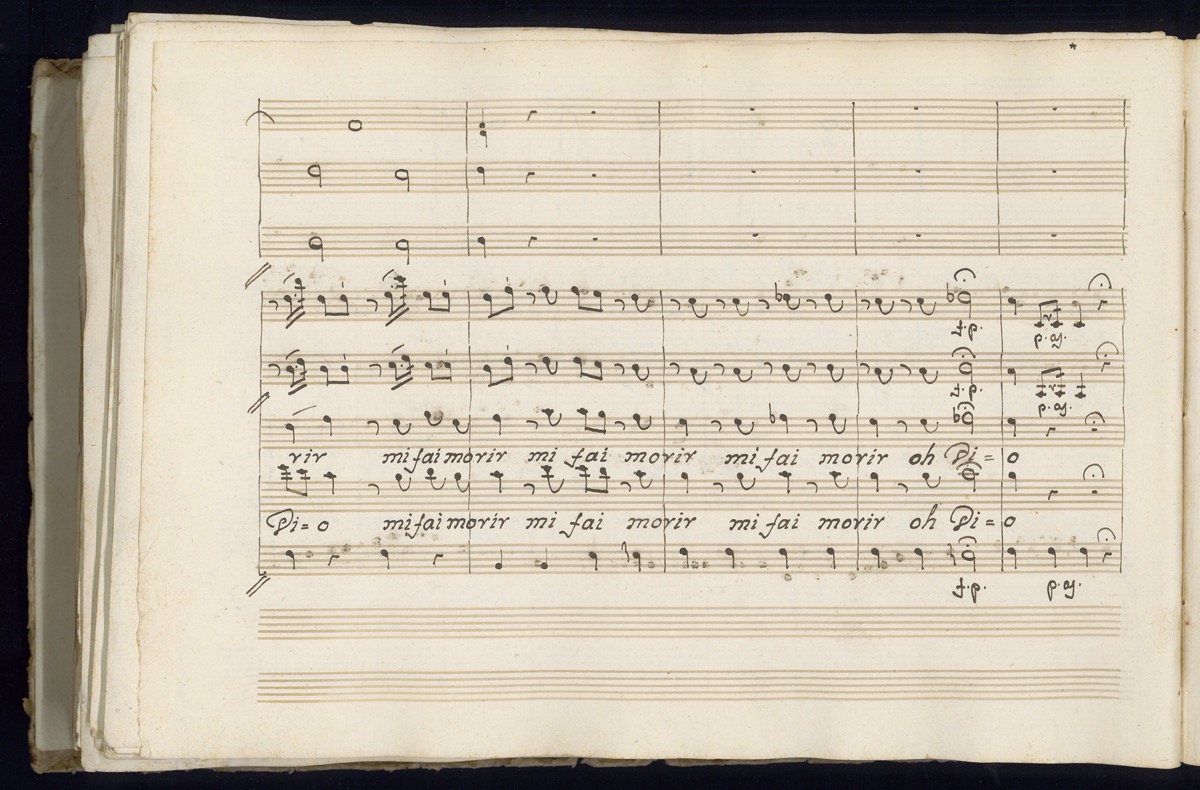 f. p.
p. g.
f. p.
p. g.
rir mi fai morir mi fai morir mi fai morir oh Di = o
Di = o mi fai morir mi fai morir mi fai morir oh Di = o
f. p. p. g.